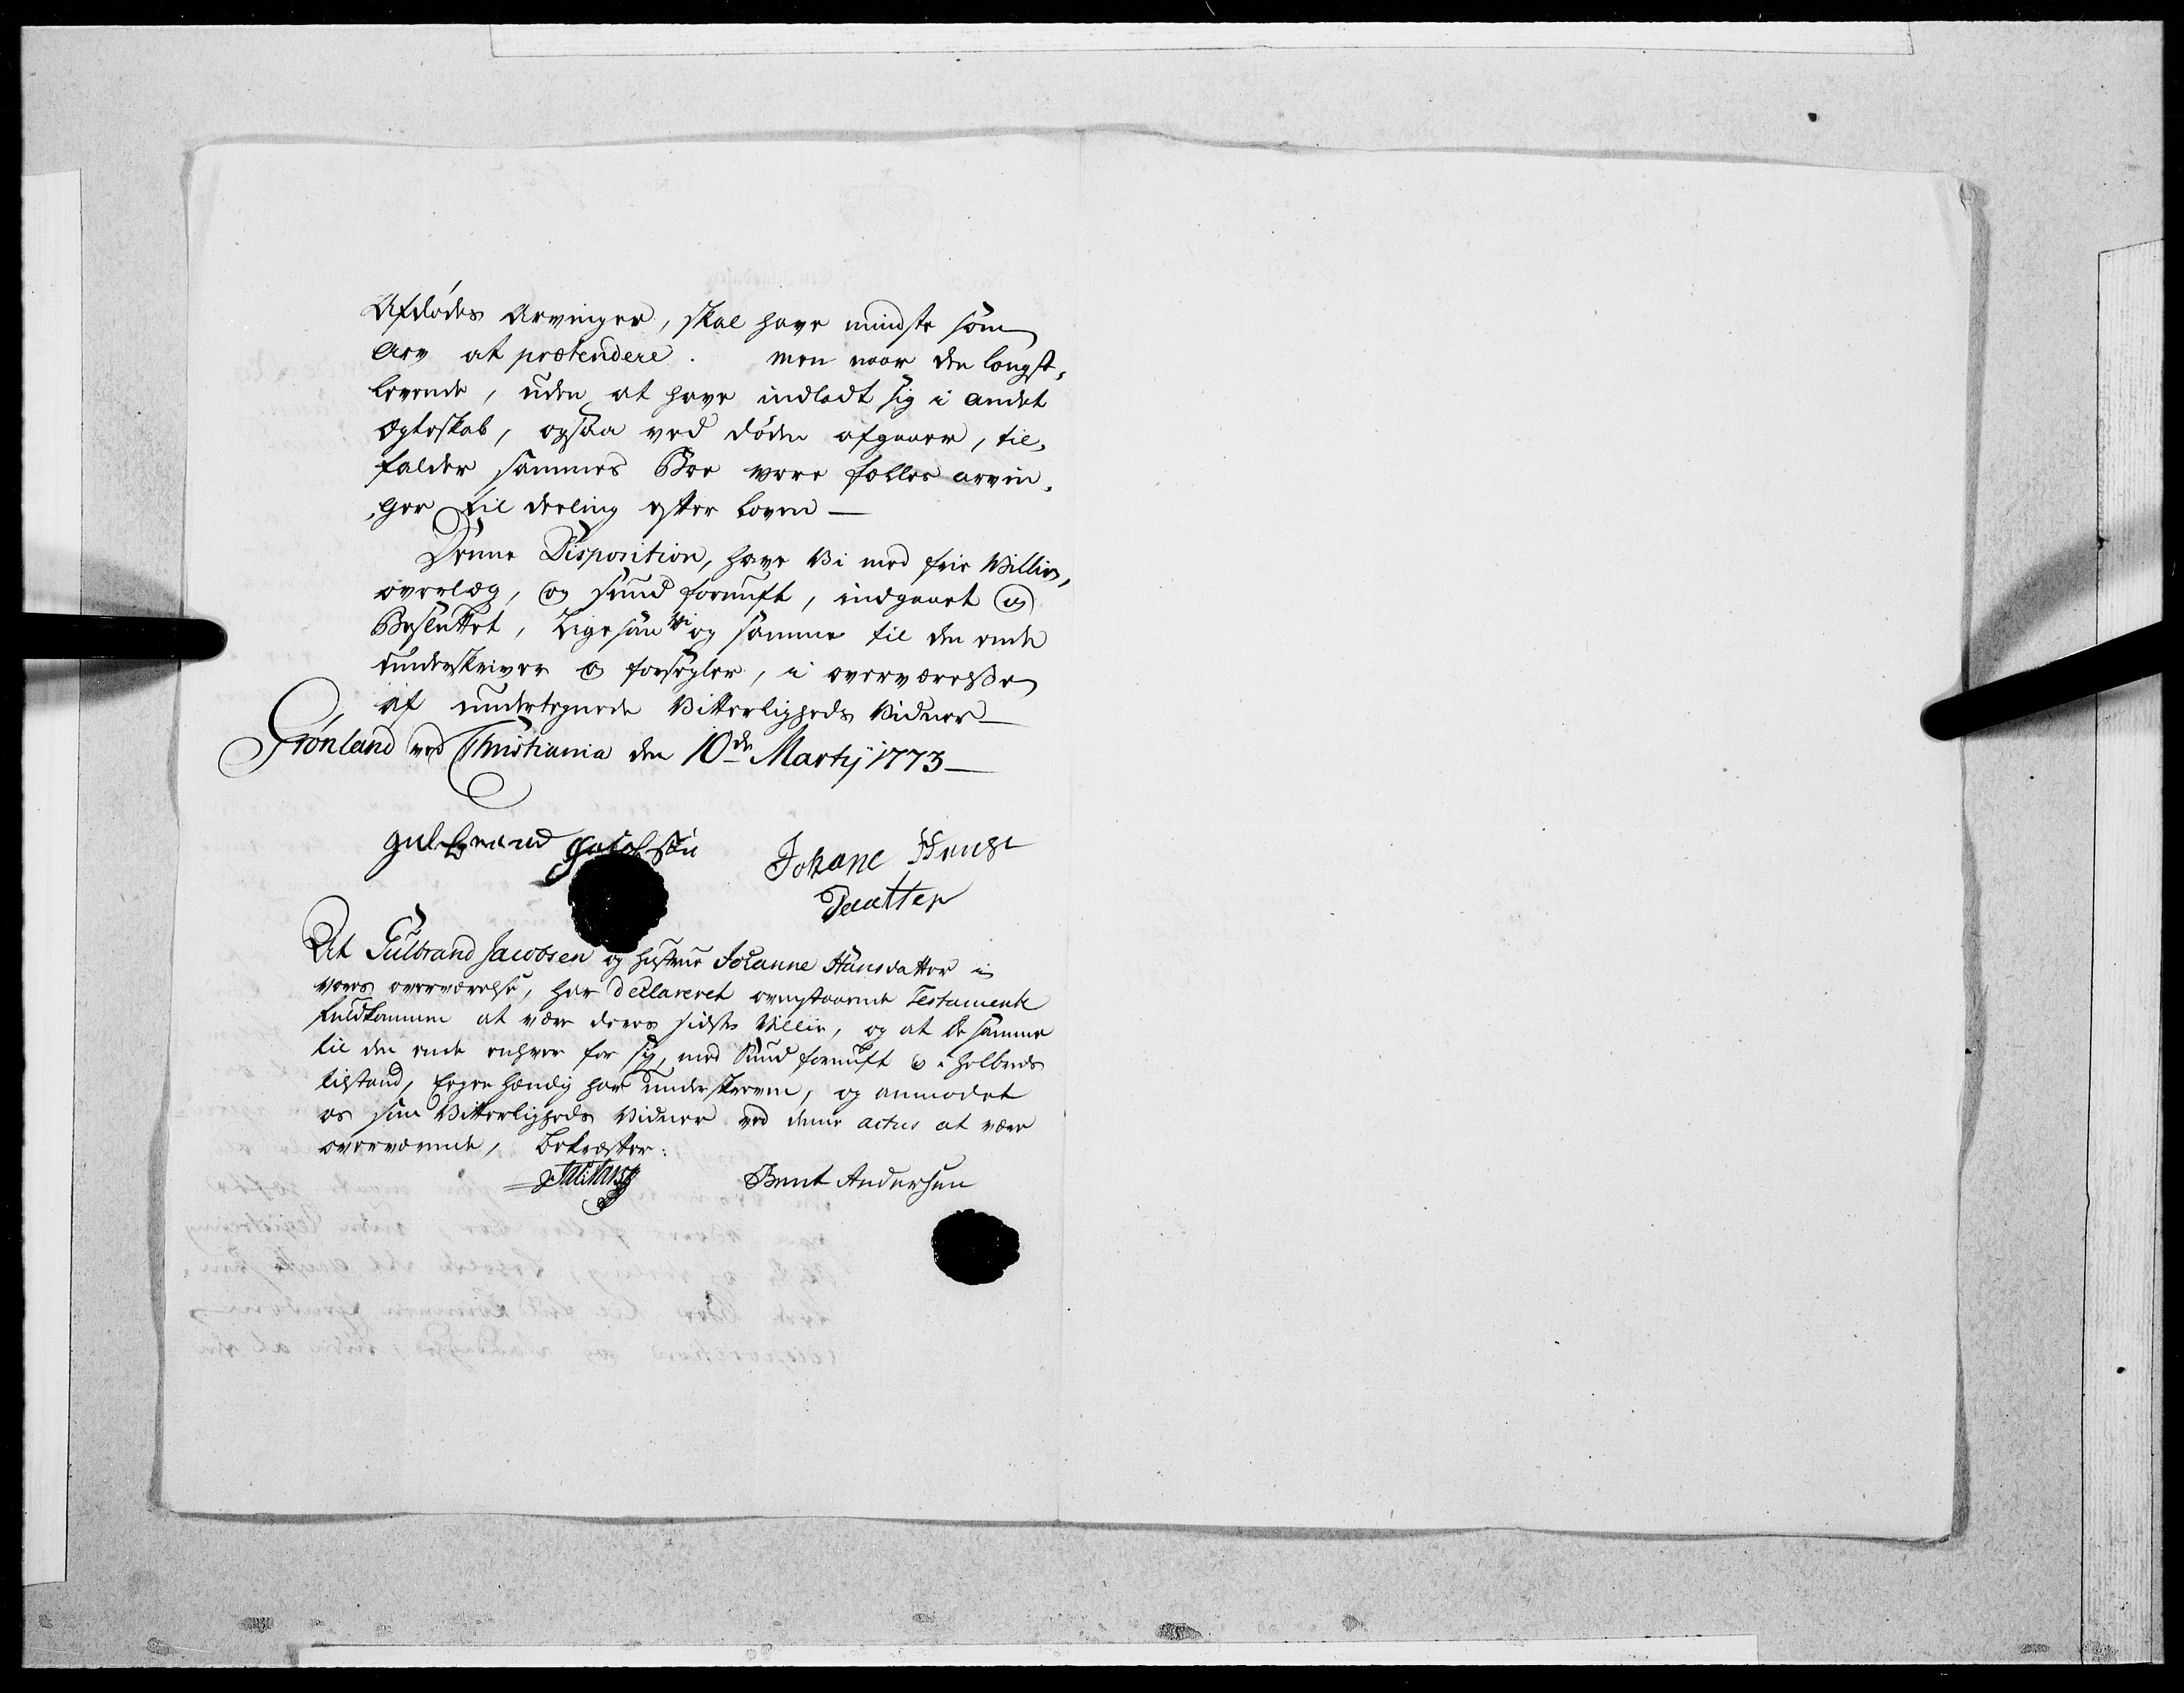 Afdødes Arvinger, skal have mindste som
Arv at prætendere. men naar den længst„
levende, uden at have indladt sig i andet
Ægteskab, ogsaa ved døden afgaaer, til„
falder sammes Boe vore fælles arvin„
„ger til deeling efter loven —
Denne Disposition, have Vi med frie Villie,
overlæg, og sund fornuft, indgaaet og
Besluttet, Ligesom Vi og samme til den ende
underskriver og forsegler, i overværelse
af undertegnede Vitterligheds Vidner —
Grønland ved Christiania den 10de Martij 1773 —
gulbrand Jacobsen
Johane Hans
Daatter
At Gulbrand Jacobsen og hustrue Johanne Hansdatter i
vores overværelse, har declareret ovenstaaende Testamente
fuldkommen at være deres sidste Villie, og at de samme
til den ende enhver for sig, med Sund fornuft og i helbreds
tilstand, egenhændig har underskreven, og anmodet
os som Vitterligheds Vidner ved denne actus at være
overværende, bekræfter:
Bent Andersen